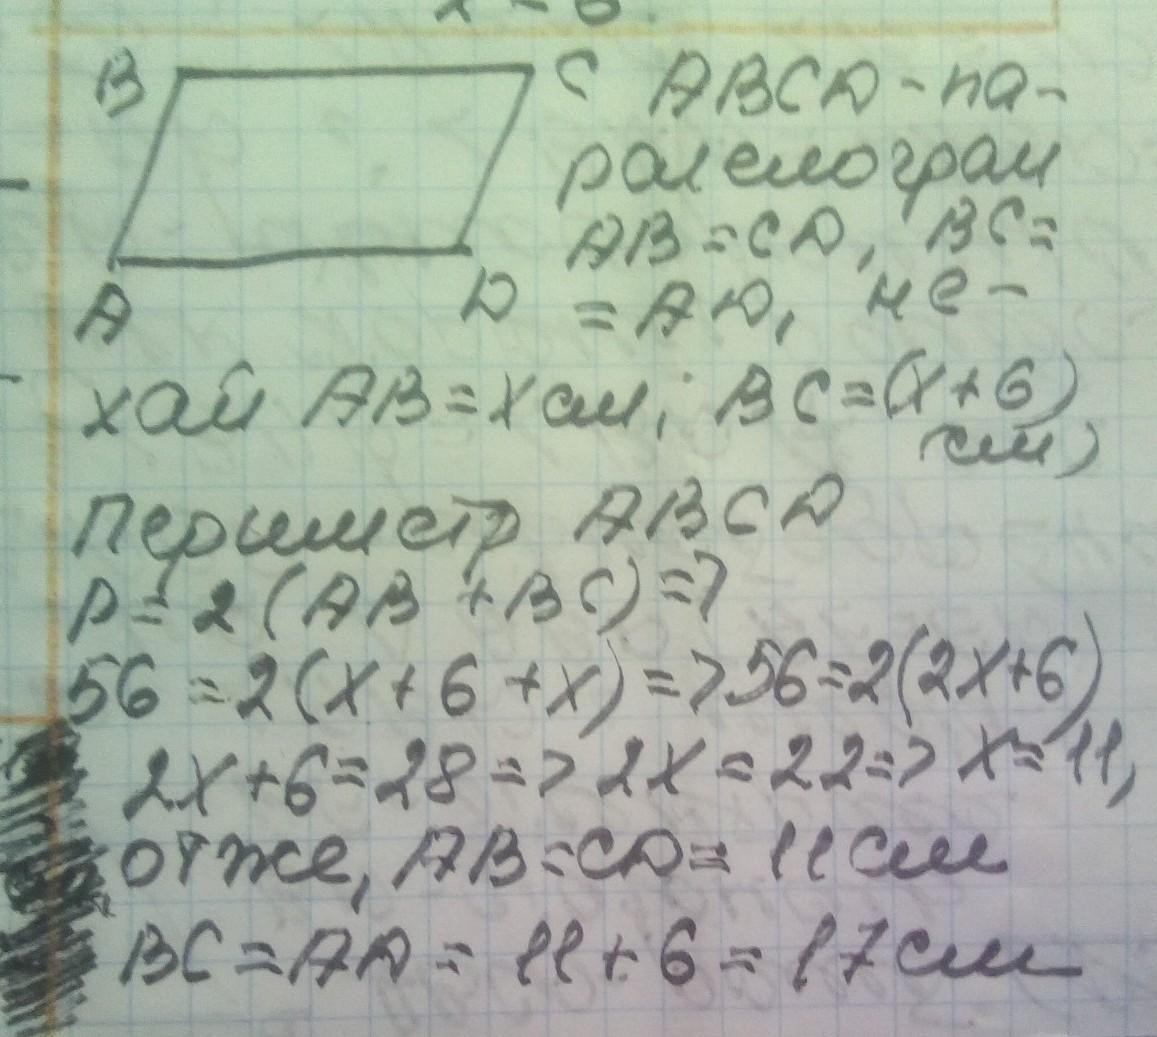 B C ABCD - па-
ралелограм
AB = CD, BC =
A D = AD, не-
хай AB = x см; BC = (x + 6)
см)
Периметр ABCD
P = 2 (AB + BC) =>
56 = 2(x + 6 + x) => 56 = 2(2x + 6)
2x + 6 = 28 => 2x = 22 => x = 11,
отже, AB = CD = 11 см
BC = AD = 11 + 6 = 17 см